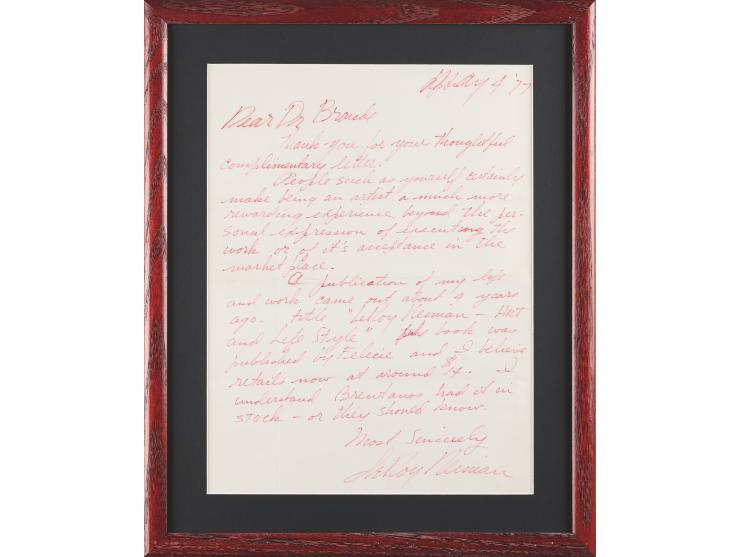 4 '77
Dear Dr
Thank you for your thoughtful
complimentary letter.
People such as yourself certainly
make being an artist a much more
rewarding experience beyond the per-
sonal expression of executing the
work or of it's acceptance in the
market place.
A publication of my life
and work came out about 4 years
ago. title "LeRoy Neiman - Art
and Life Style" book was
published by Felicie and I believe
retails now at around $14. I
understand Brentanos had it in
stock - or they should know.
Most Sincerely
LeRoy Neiman